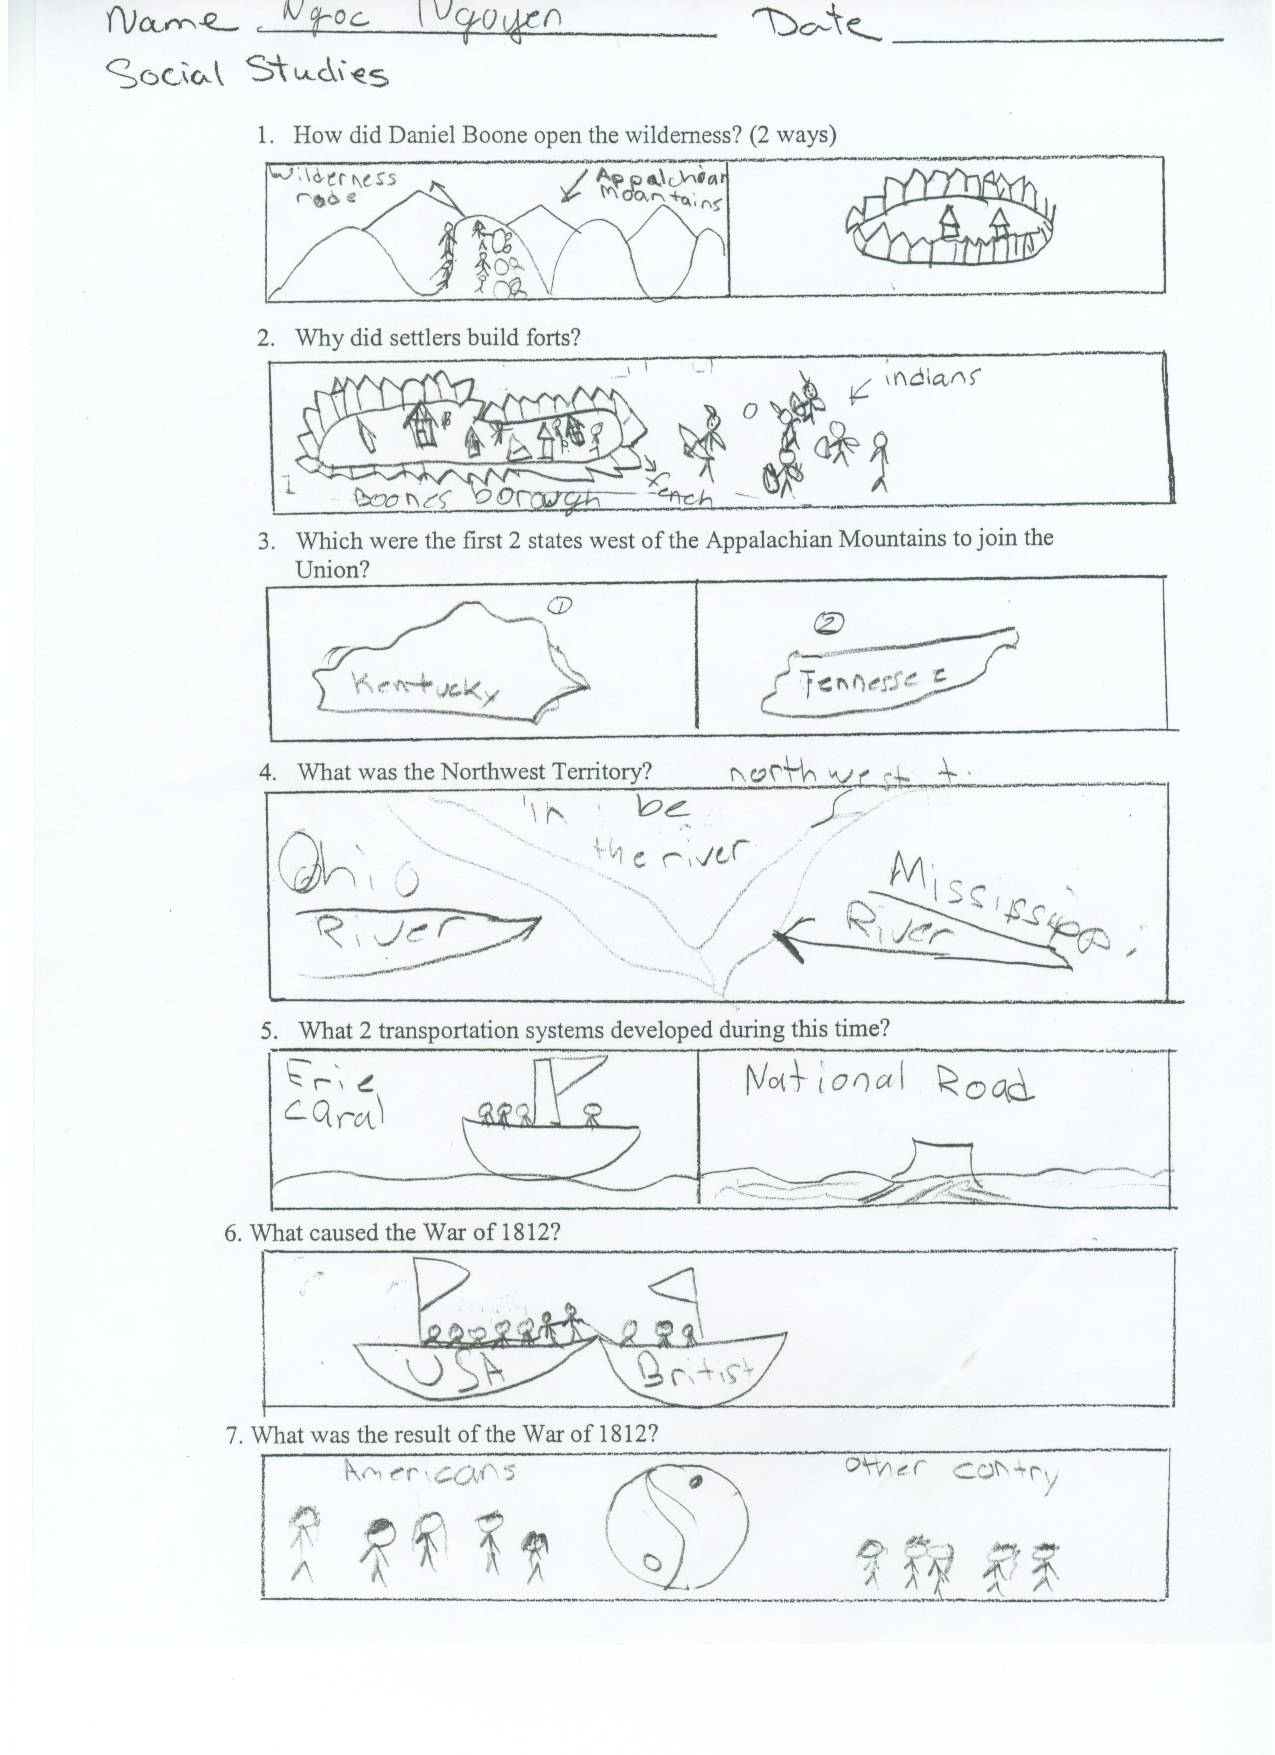 Name Ngoc Ngoyen Date
Social Studies
1. How did Daniel Boone open the wilderness? (2 ways)
Wilderness
Appalchian
Moantains
2. Why did settlers build forts?
indians
Boones borough
3. Which were the first 2 states west of the Appalachian Mountains to join the
Union?
1
2
Kentucky
Tennessee
4. What was the Northwest Territory? north west t.
in be
the river
Ohio
River
Mississippi
River
5. What 2 transportation systems developed during this time?
Erie
caral
National Road
6. What caused the War of 1812?
USA
Britist
7. What was the result of the War of 1812?
Americans
other contry